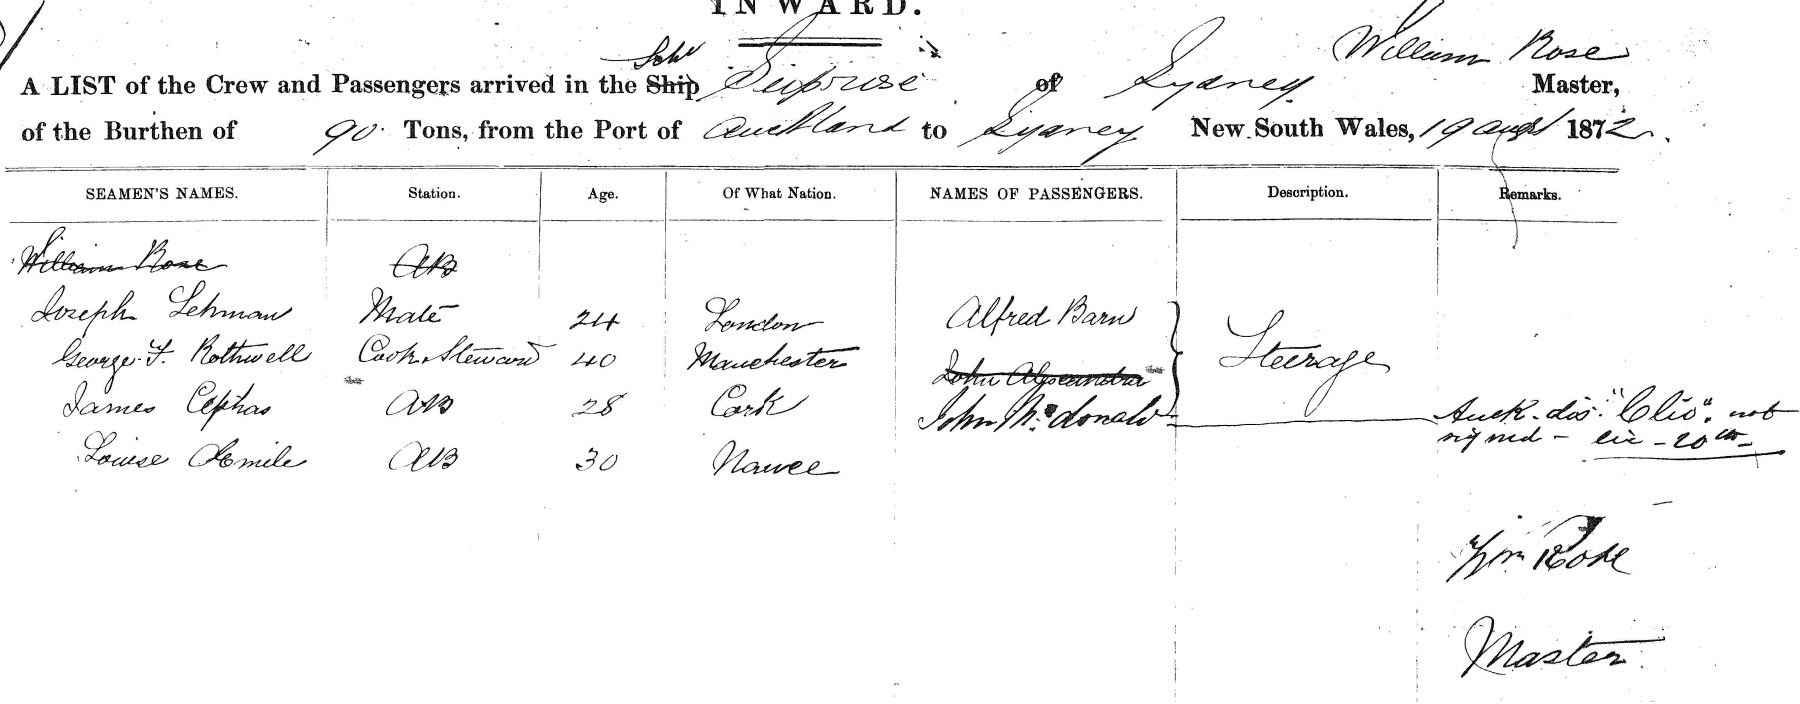 INWARD.
William Rose
A LIST of the Crew and Passengers arrived in the Ship Schr Surprise of Sydney Master,
of the Burthen of 90 Tons, from the Port of Auckland to Sydney New South Wales, 19 Augt 1872.
SEAMEN'S NAMES. Station. Age. Of What Nation. NAMES OF PASSENGERS. Description. Remarks.
William Rose AB
Joseph Lehman Mate 24 London Alfred Barn Steerage
George F. Rothwell Cook & Steward 40 Manchester John Alexandra
James Cephas AB 28 Cork John McDonald Auck. dis. "Clio". not
signed - 20th
Louise Emile AB 30
Wm Rose
Master